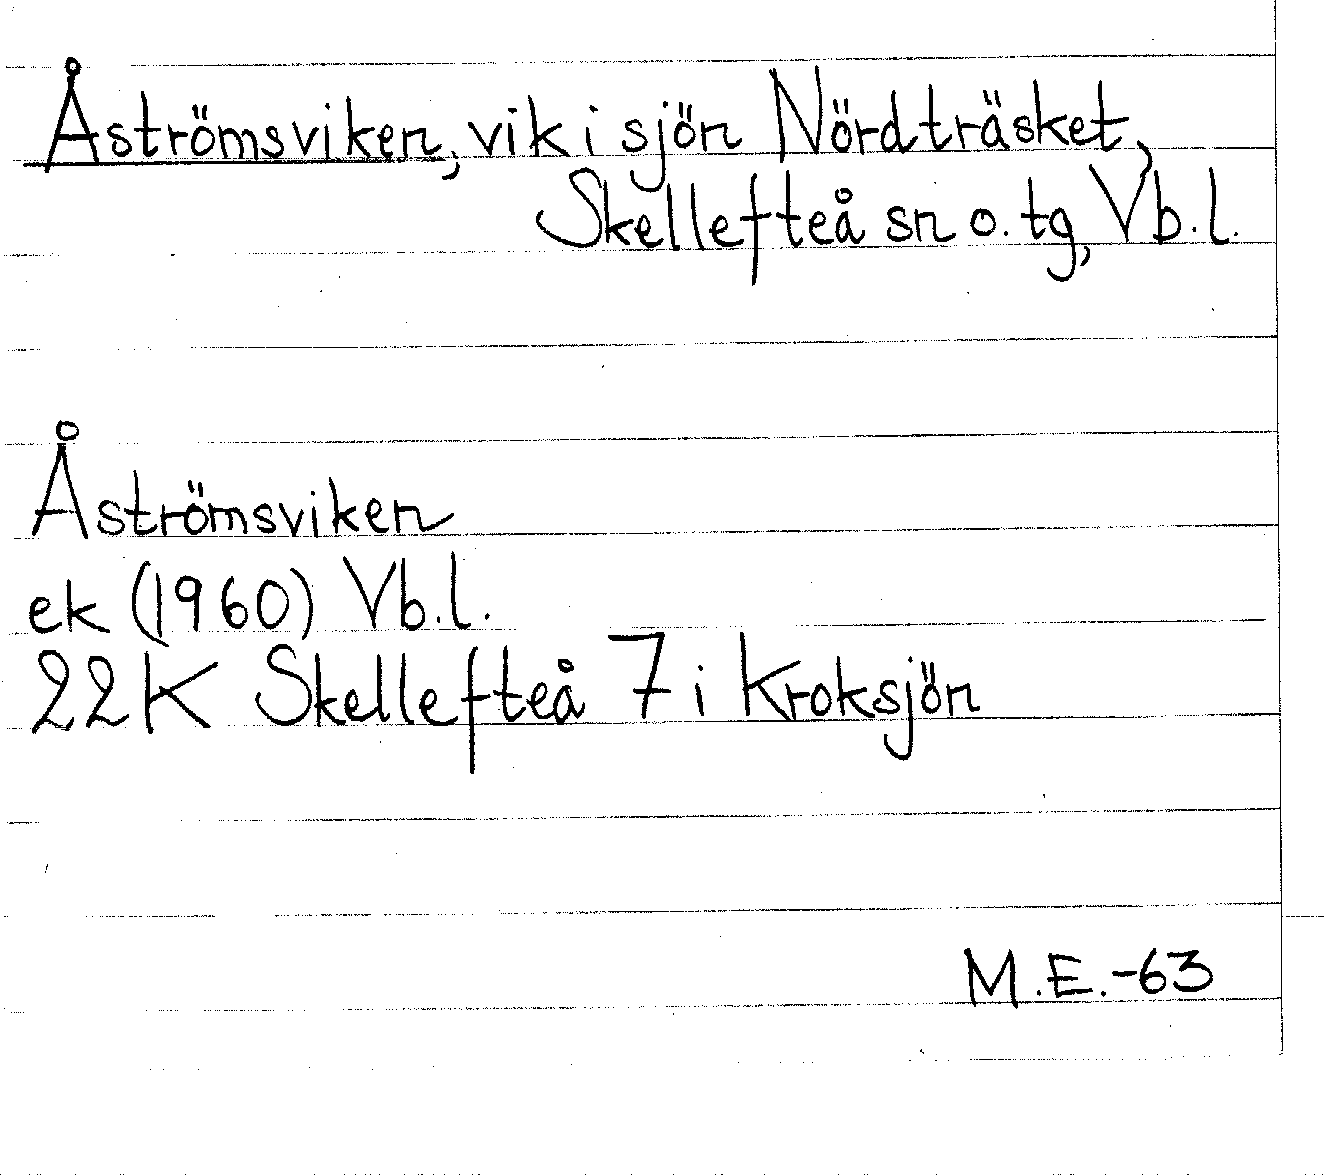 Åströmsviken, vik i sjön Nördträsket,
Skellefteå sn o. tg, Vb.l.
Åströmsviken
ek (1960) Vb.l.
22K Skellefteå 7 i Kroksjön
M.E.-63